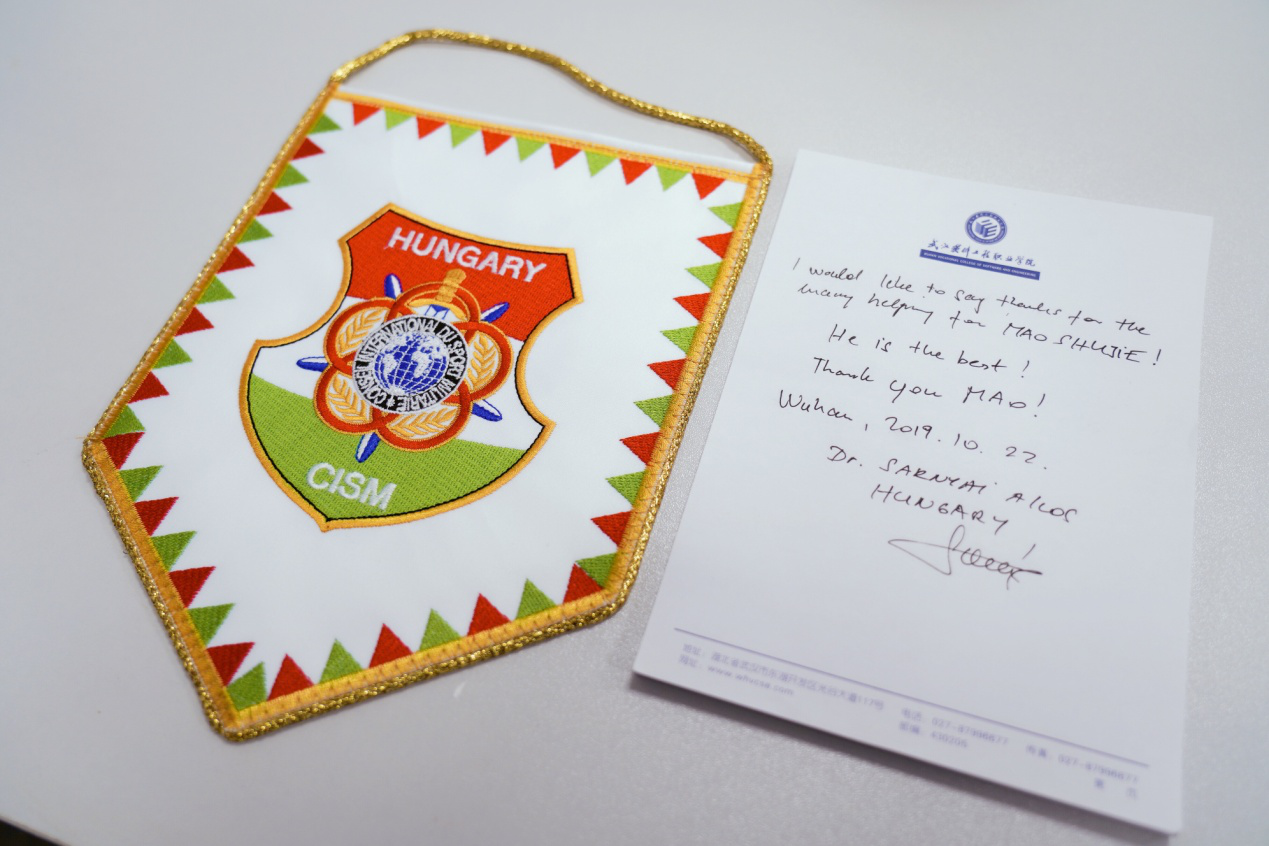 HUNGARY
CONSEIL INTERNATIONAL DU SPORT MILITAIRE
CISM
武汉软件工程职业学院
WUHAN VOCATIONAL COLLEGE OF SOFTWARE AND ENGINEERING
I would like to say thanks for the
many helping for MAO SHUJIE!
He is the best!
Thank you MAO!
Wuhan, 2019. 10. 22.
Dr. SARNYAI AKOS
HUNGARY
地址：湖北省武汉市东湖开发区光谷大道117号 电话：027-87996677 传真：027-87996677
网址：www.whvcse.com 邮编：430205
第 页